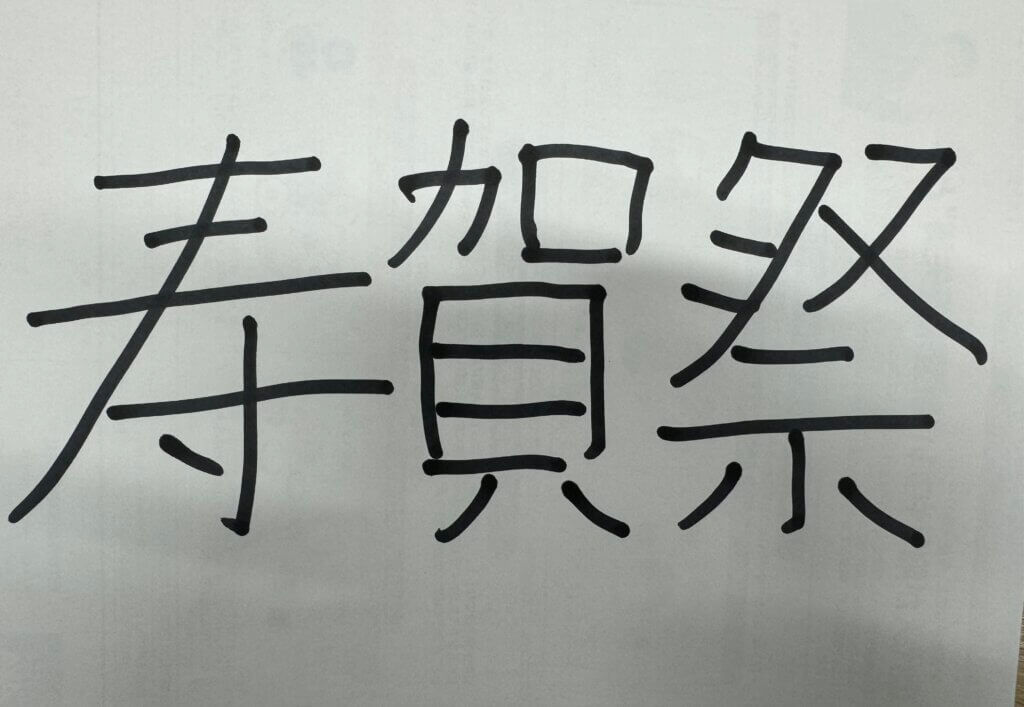 寿賀祭